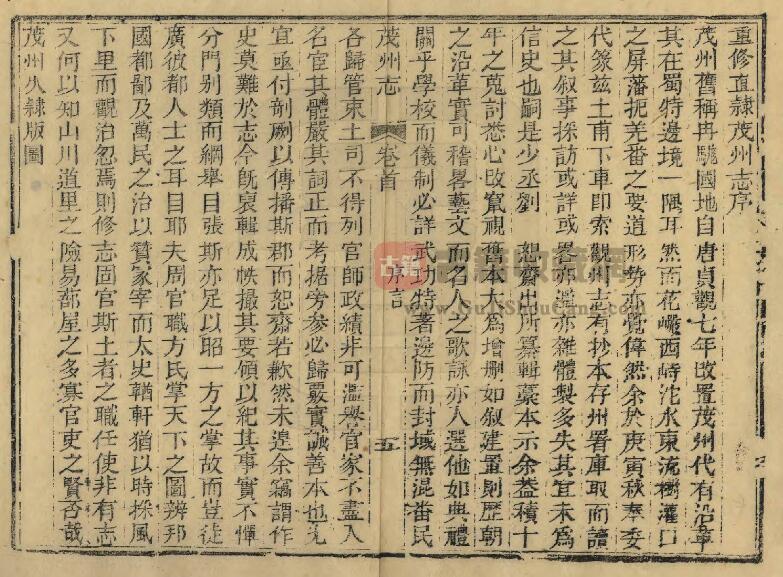 重修直隸茂州志序
茂州舊稱冉駹國地自唐貞觀七年改置茂州代有沿革
其在蜀特邊境一隅耳然而花巖西峙沱水東流樹灌口
之屏藩扼羌番之要道形勢亦覺偉然余於庚寅秋奉委
代篆茲土甫下車即索觀州志有抄本存州署庫取而讀
之其叙事採訪或詳或畧亦濫亦雜體製多失其宜未爲
信史也嗣是少丞劉恕齋出所纂輯藁本示余益積十
年之蒐討悉心改竄視舊本大爲增刪如叙建置則歷朝
之沿革實可稽畧藝文而名人之歌詠亦入選他如典禮
關乎學校而儀制必詳武功特著邊防而封域無混番民
茂州志
卷首
序言
五
各歸管束土司不得列官師政績非可濫譽官家不盡入
名宦其體嚴其詞正而考据旁參必歸覈實誠善本也尤
宜亟付剞劂以傳播斯郡而恕齋若歉然未遑余竊謂作
史莫難於志今旣裒輯成帙撮其要領以紀其事實不憚
分門别類而綱舉目張斯亦足以昭一方之掌故而豈徒
廣彼都人士之耳目耶夫周官職方氏掌天下之圖辨邦
國都鄙及萬民之治以贊冢宰而太史輶軒猶以時採風
下里而觀治忽焉則修志固官斯土者之職任使非有志
又何以知山川道里之險易蔀屋之多寡官吏之賢否哉
茂州久隷版圖
古籍收藏網
www.GuJiShouCang.com